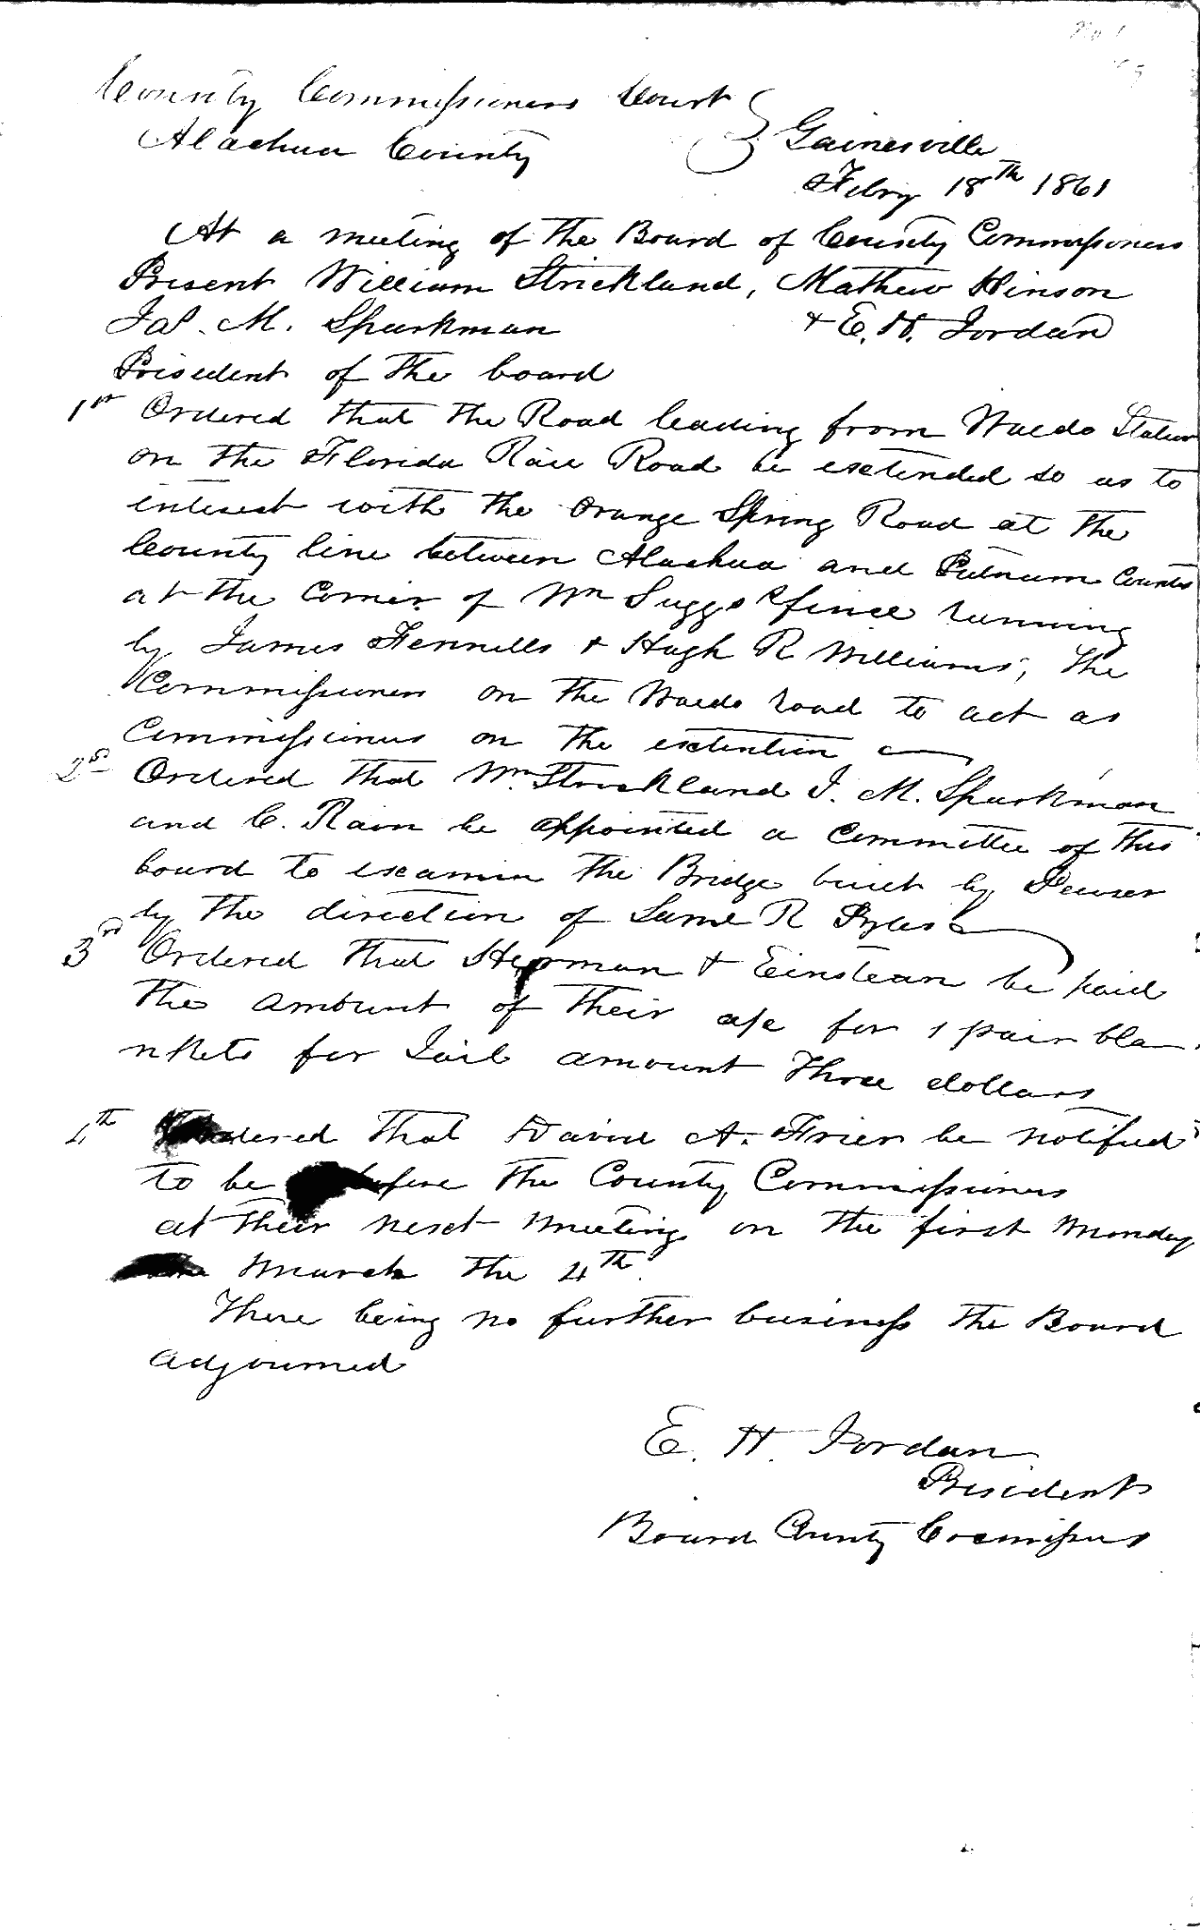 County Commissioners Court
Alachua County
Gainesville
Febry 18th 1861
At a meeting of the Board of County Commissioners
Present William Strickland, Mathew Hinson
Jas. M. Sparkman & E. H. Jordan
President of the board
1st Ordered that the Road leading from Waldo Station
on the Florida Rail Road be extended so as to
interest with the Orange Spring Road at the
County line between Alachua and Putnam Counties
at the Corner of Wm Suggs fince running
by James Fennells & Hugh R Williams; the
Commissioners on the Waldo road to act as
Commissioners on the extention
2nd Ordered that Wm Strickland J. M. Sparkman
and C. Rain be appointed a Committee of this
board to examin the Bridge built by
by the direction of Saml R Pyles
3rd Ordered that Herman & Einstean be paid
the amount of their a/c for 1 pair bla-
nkets for Jail amount Three dollars
4th Ordered that David A. Frier be notified
to be before the County Commissioners
at their next meeting on the first Monday
March the 4th
There being no further business the Board
adjourned
E. H. Jordan
President
Board County Commissioners